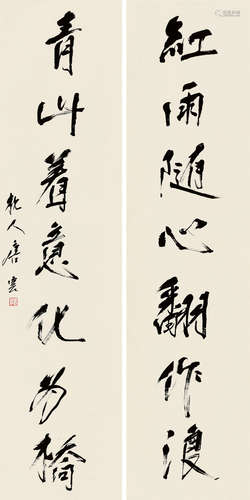 紅雨随心翻作浪
青山着意化為橋
杭人唐雲